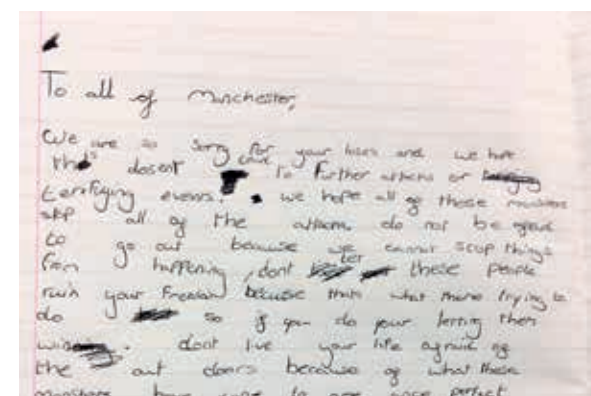 To all of manchester,
We are so sorry for your loses and we hope
this doesent to further attacks or
terrifying events. we hope all of these monsters
stop all of the attacks. do not be afraid
to go out because we cannot stop things
from happening, dont let these people
ruin your freedom because thats what there trying to
do so if you do your letting them
win. dont live your life afraid of
the out doors because of what these
monsters have done to our once perfect